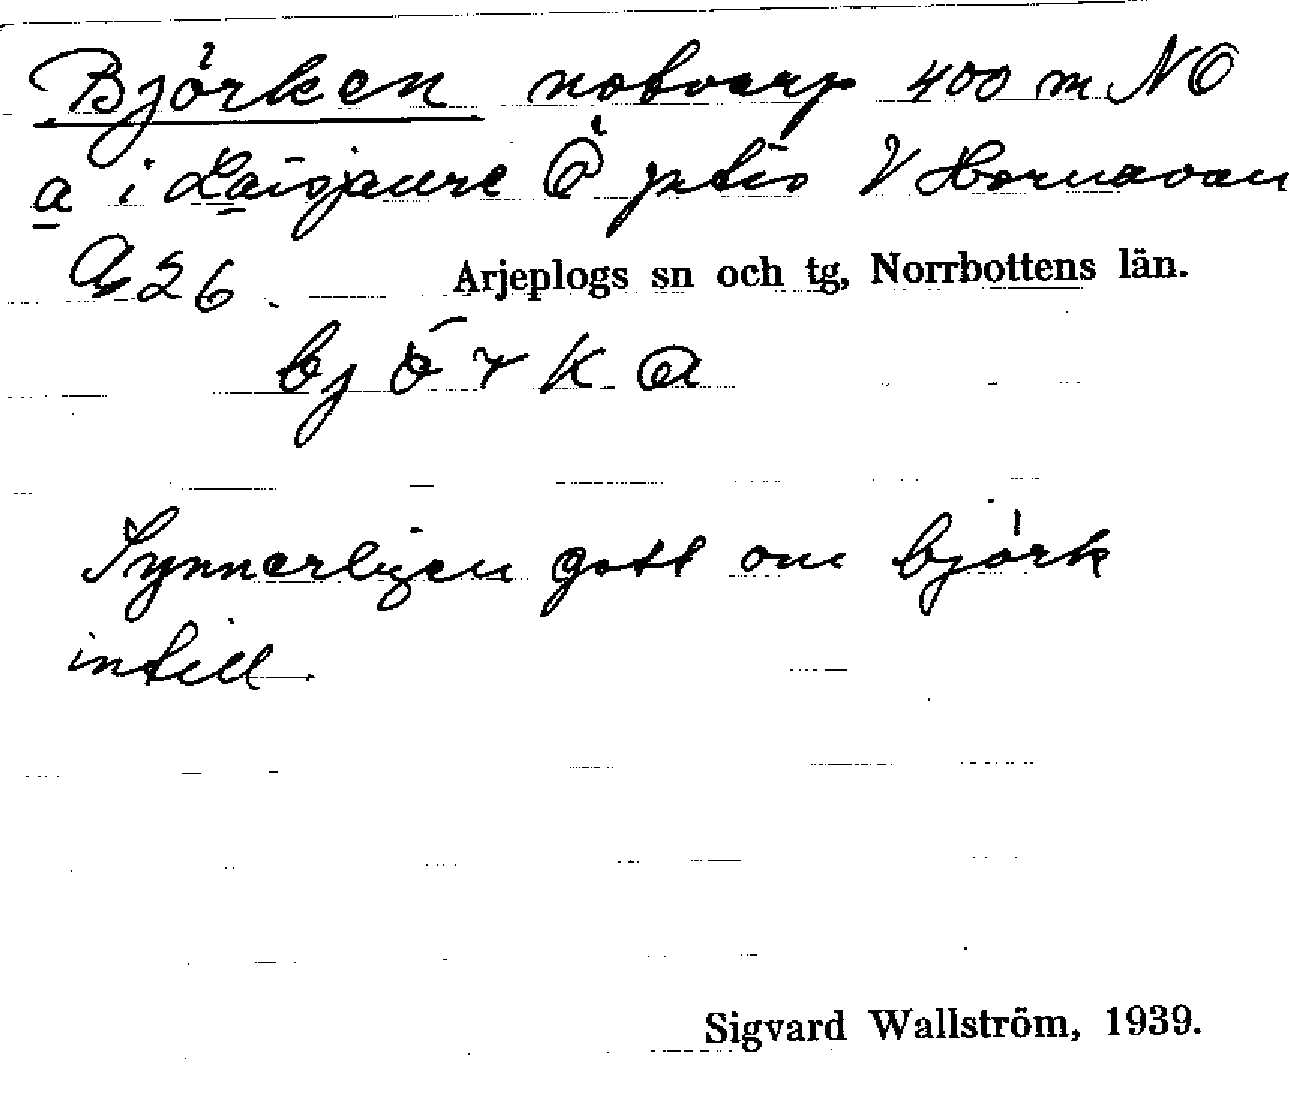 Björken notvarp 400 m NO
a i Laisjaure Ö
V Hornavan
26. Arjeplogs sn och tg, Norrbottens län.
bjȫrka
Synnerligen gott om björk
intill.
Sigvard Wallström, 1939.